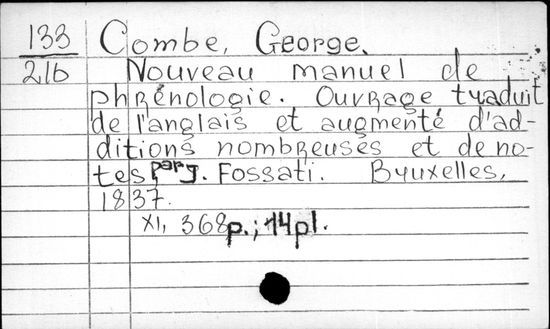 133 Combe, George.
216 Nouveau manuel de
phrénologie. Ouvrage traduit
de l'anglais et augmenté d'ad-
ditions nombreuses et de no-
tes par J. Fossati. Bruxelles,
1837.
XI, 368p.; 14pl.